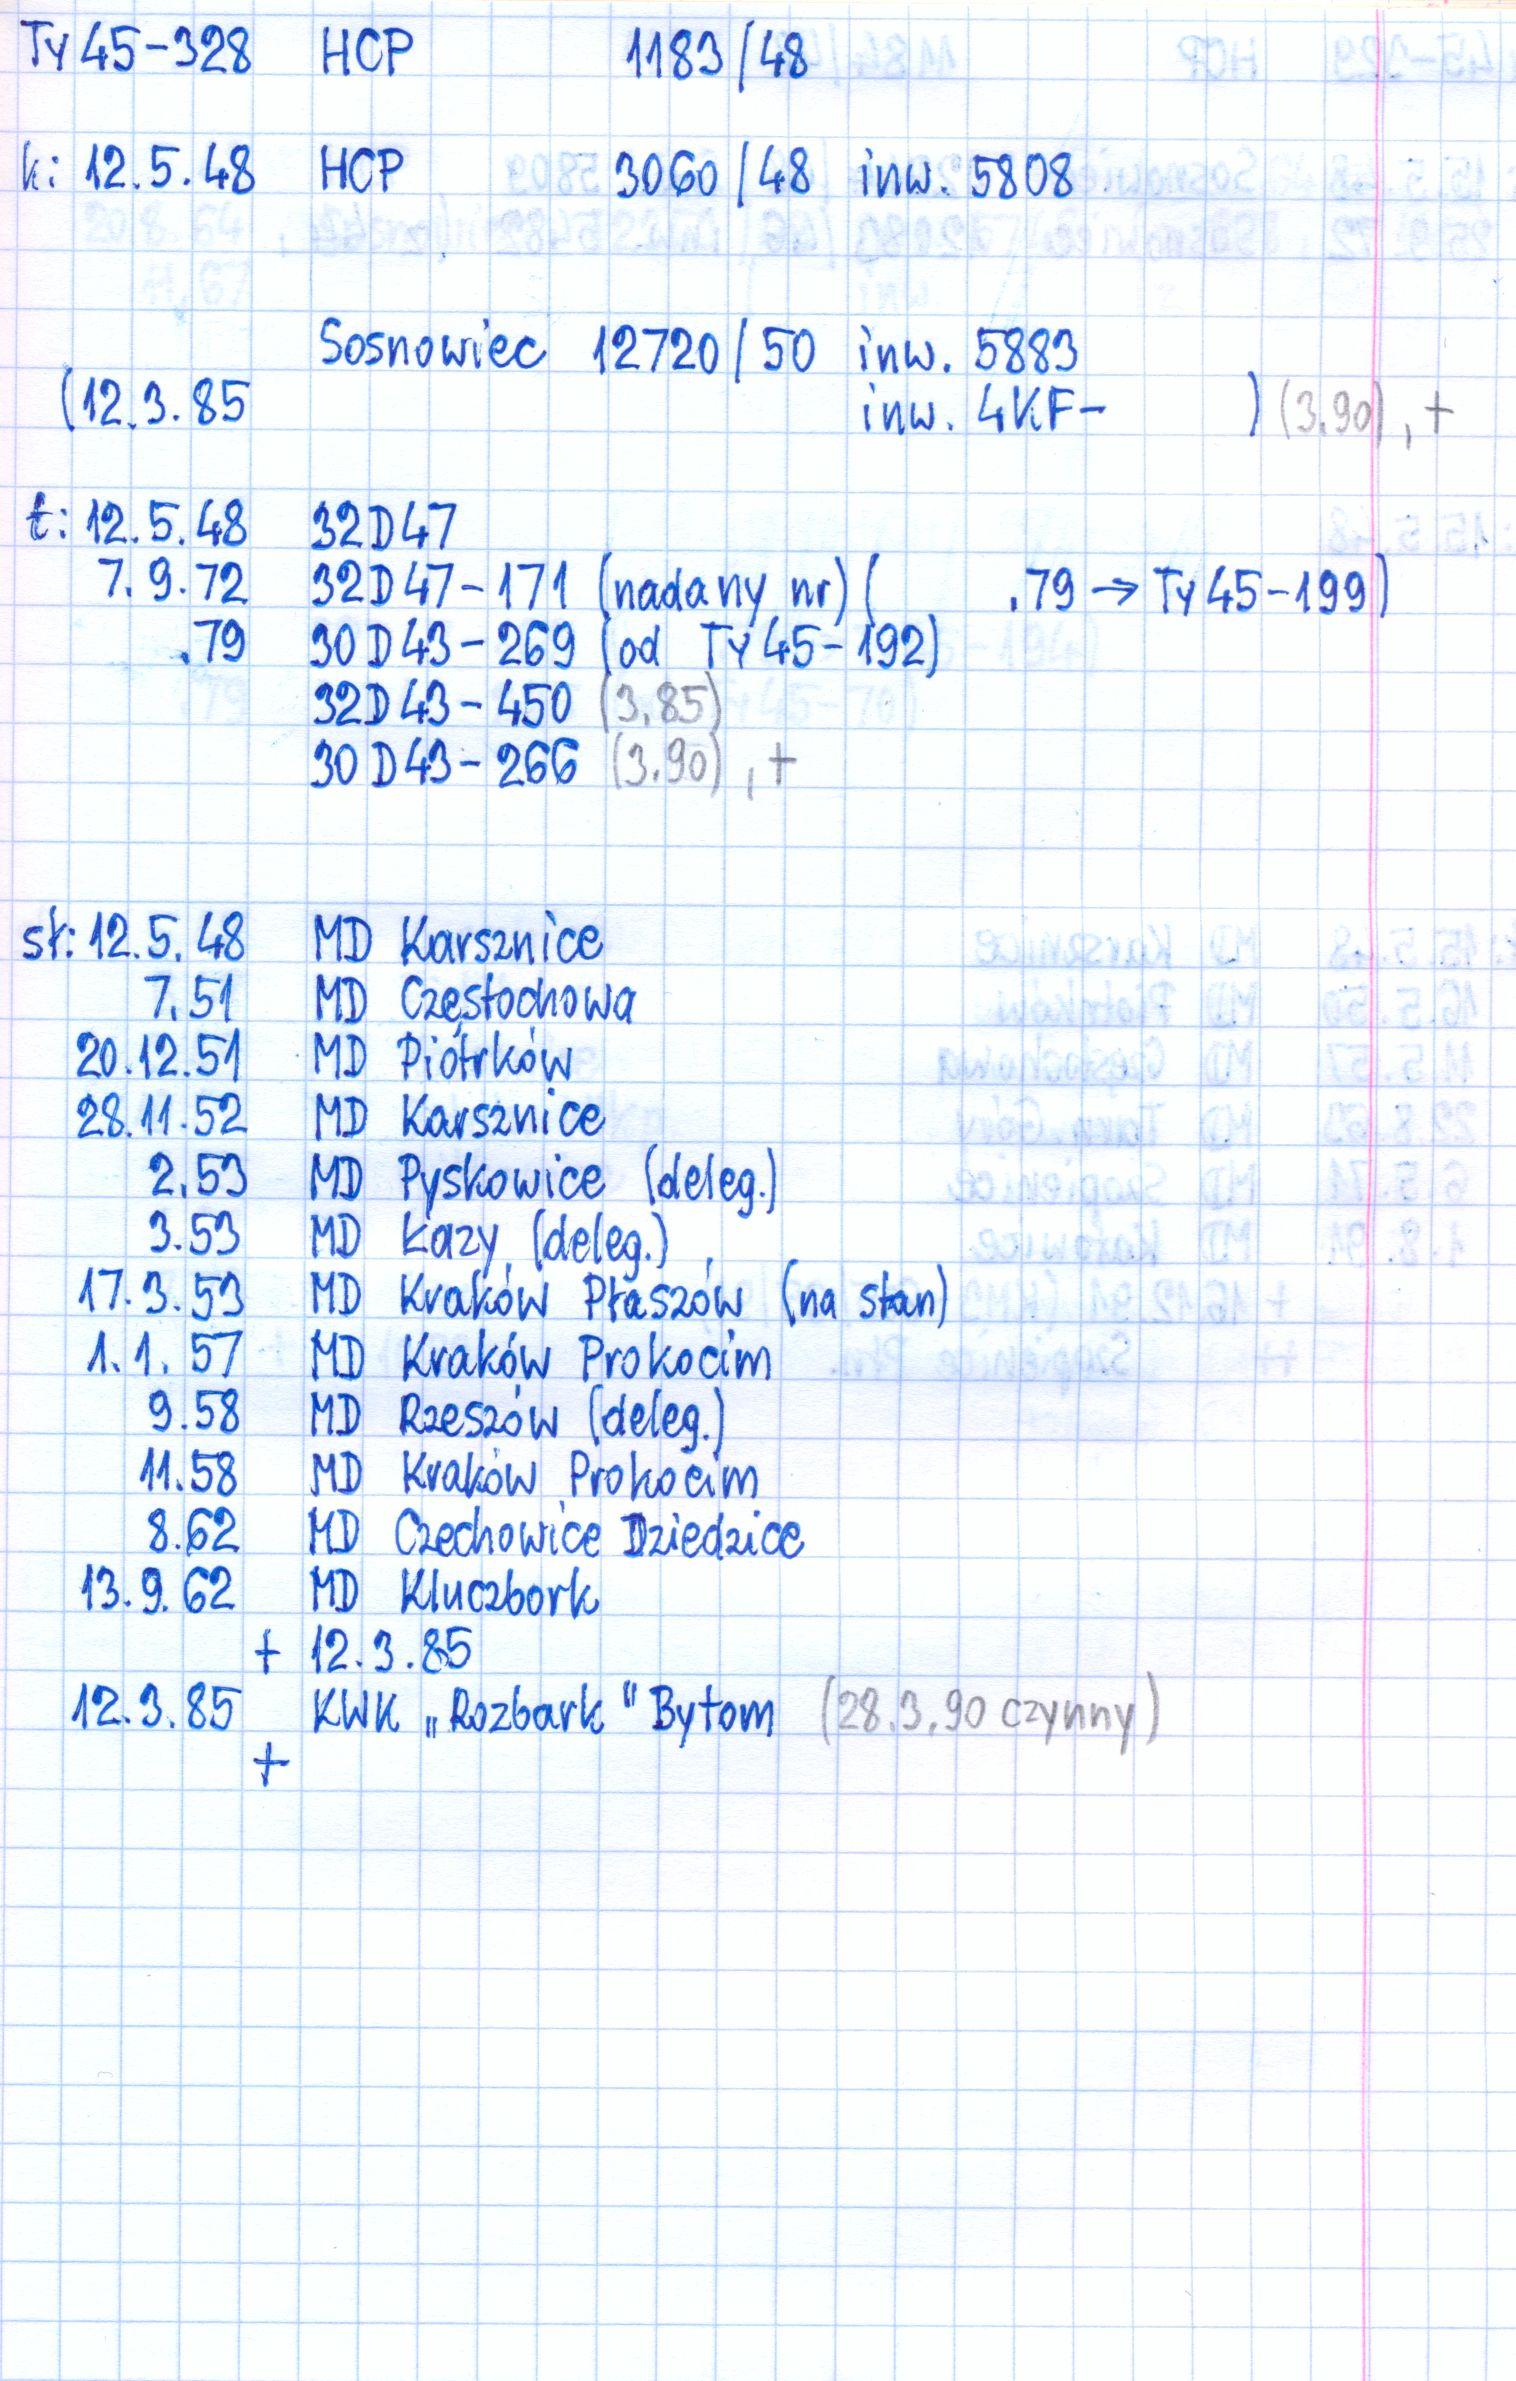 Ty 45-328 HCP 1183/48
k: 12.5.48 HCP 3060/48 inw. 5808
Sosnowiec 12720/50 inw. 5883
(12.3.85 inw. 4KF- ) (3.90), +
t: 12.5.48 32D47
7.9.72 32D47-171 (nadany nr) ( .79 → Ty 45-199)
.79 30D43-269 (od Ty 45-192)
32D43-450 (3.85)
30D43-266 (3.90), +
st: 12.5.48 MD Karsznice
7.51 MD Częstochowa
20.12.51 MD Piotrków
28.11.52 MD Karsznice
2.53 MD Pyskowice (deleg.)
3.53 MD Łazy (deleg.)
17.3.53 MD Kraków Płaszów (na stan)
1.1.57 MD Kraków Prokocim
9.58 MD Rzeszów (deleg.)
11.58 MD Kraków Prokocim
8.62 MD Czechowice Dziedzice
13.9.62 MD Kluczbork
+ 12.3.85
12.3.85 KWK „Rozbark" Bytom (28.3.90 czynny)
+